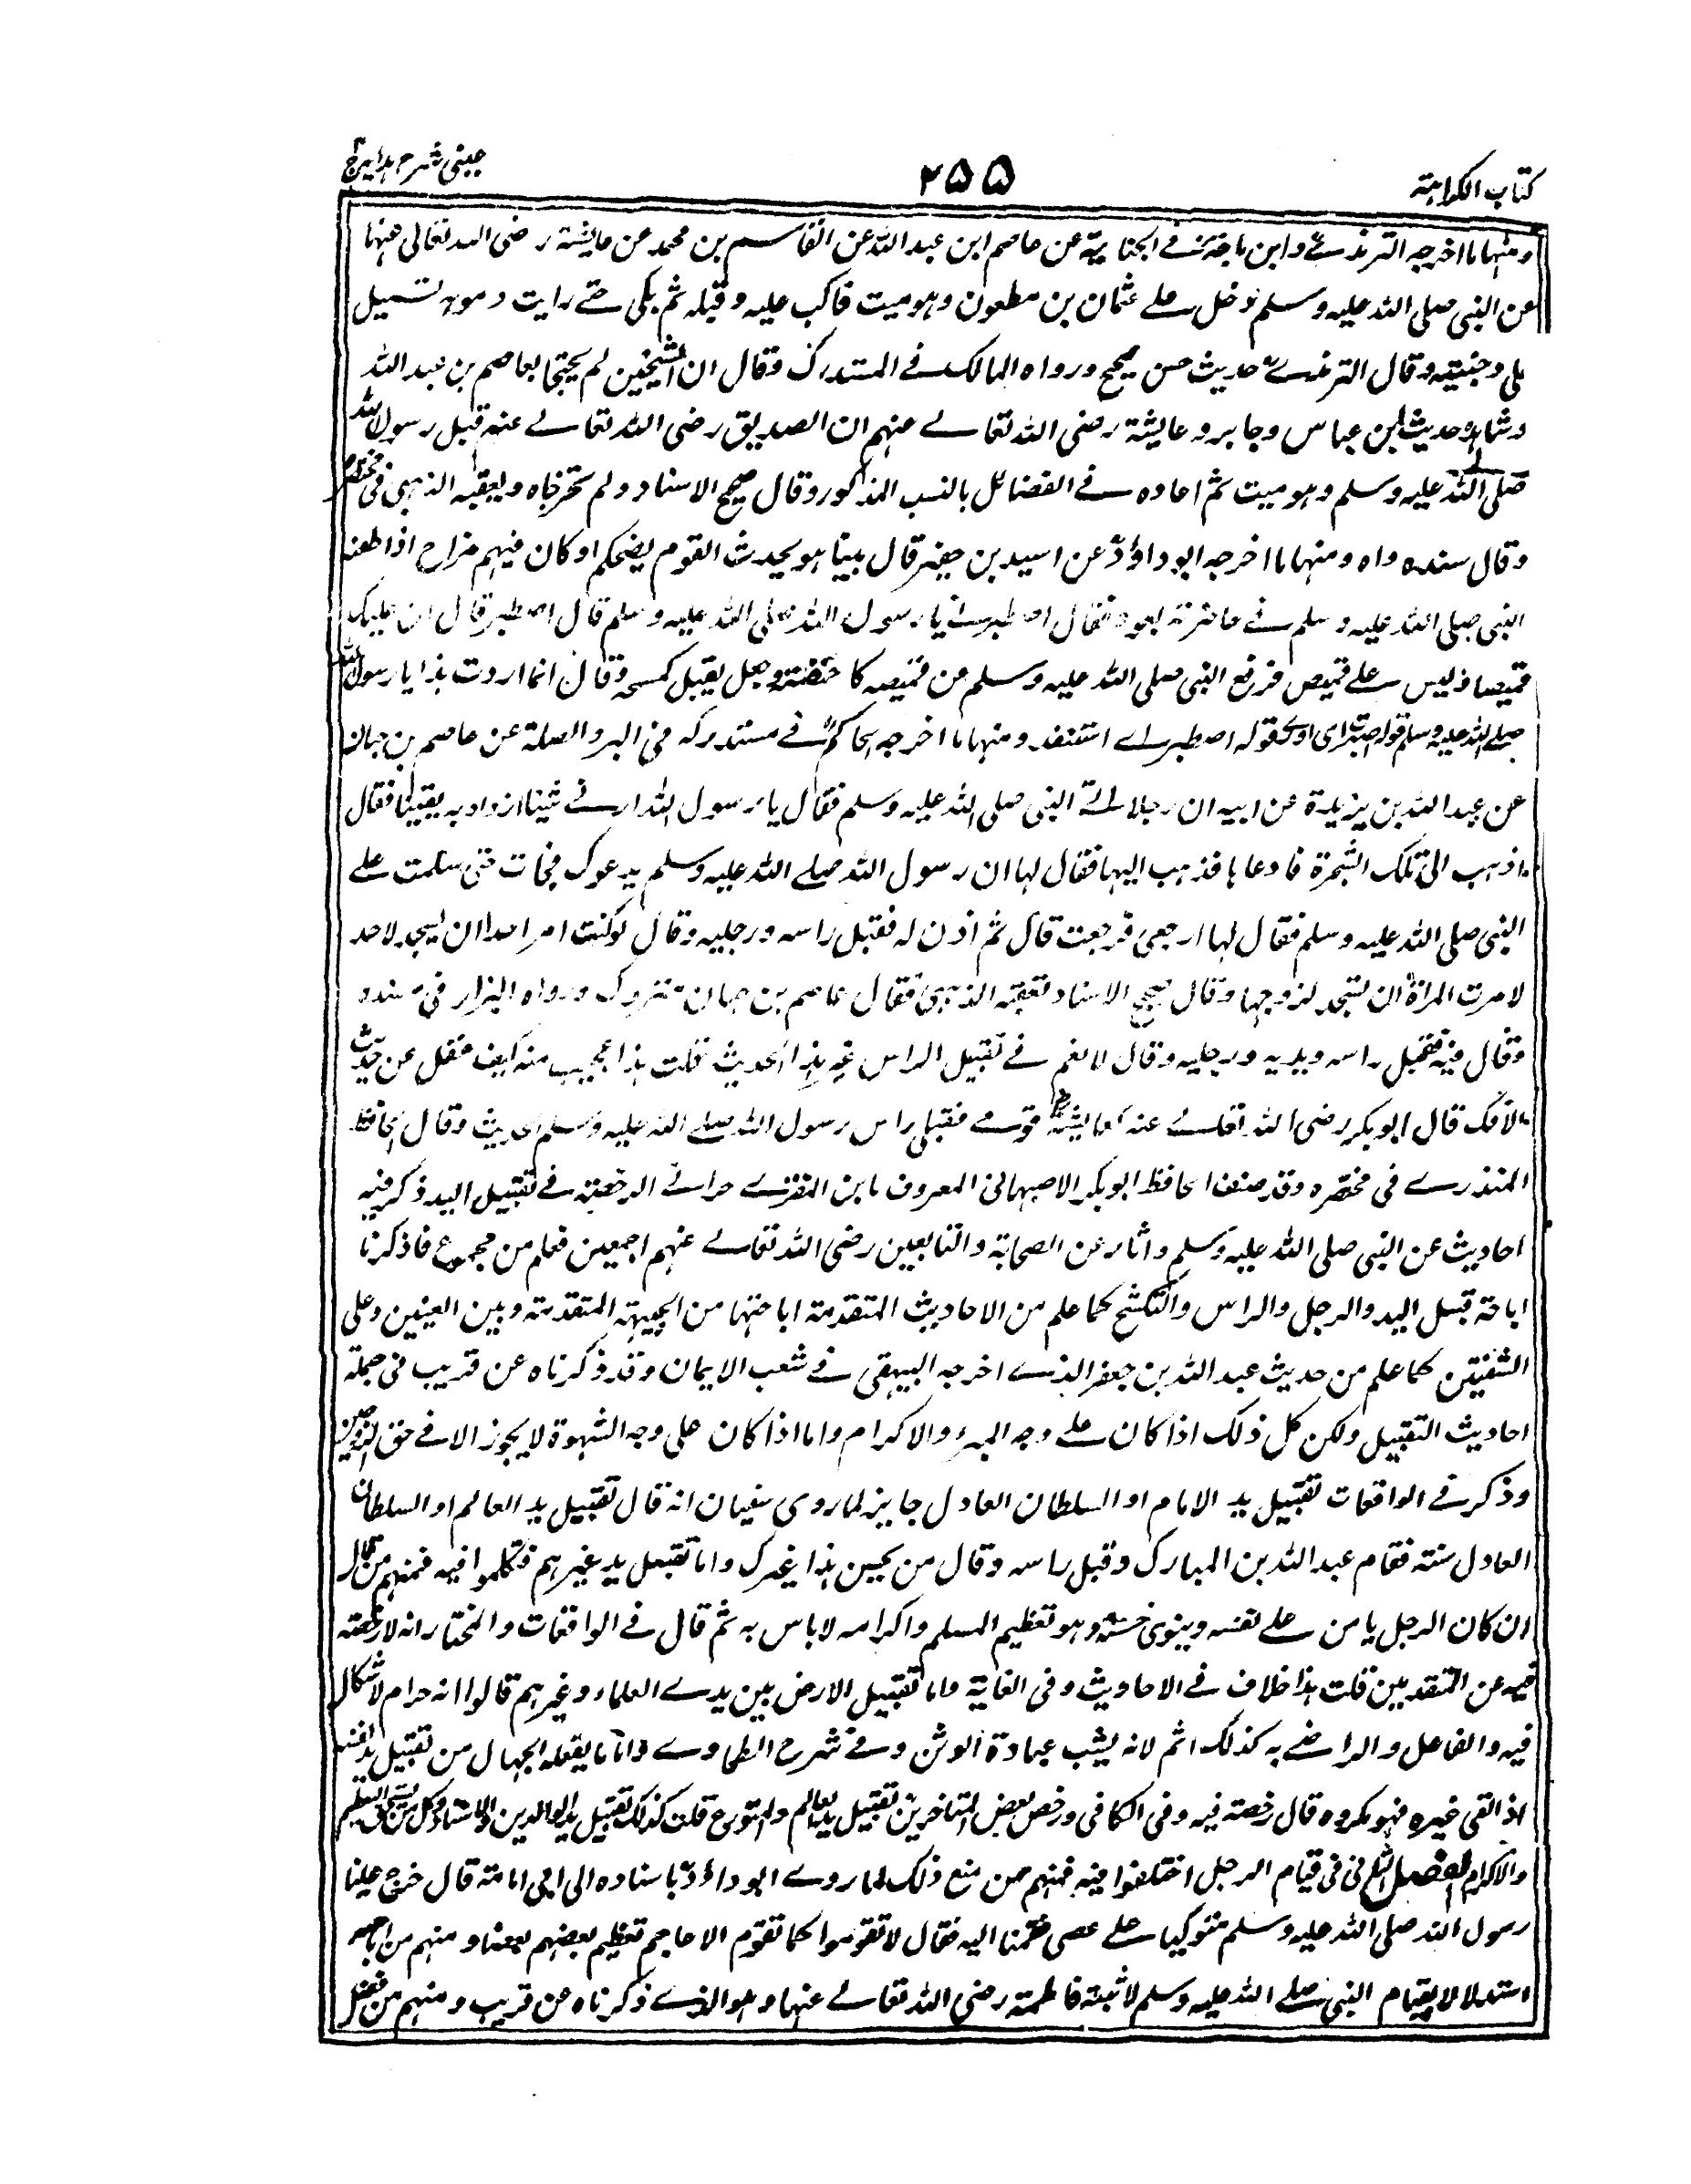 كتاب الكراهية
٢٥٥
عينى شرح هداية
ومنها ما اخرجه الترمذي وابن ماجة في الجنايية عن عاصم ابن عبد الله عن القاسم بن محمد عن عايشة رضى الله تعالى عنها
عن النبى صلى الله عليه وسلم دخل على عثمان بن مطعون وهو ميت فاكب عليه وقبله ثم بكى حتے رايت دموعه تسيل
على وجنتيه وقال الترمذے حديث حسن صحيح ورواه الحاكم في المستدرك وقال ان الشيخين لم يحتجا بعاصم بن عبد الله
وشاهده حديث ابن عباس وجابر وعايشة رضى الله تعالے عنهم ان الصديق رضى الله تعالے عنه قبل رسول الله
صلى الله عليه وسلم وهو ميت ثم اعاده في الفضائل بالنسب المذكور وقال صحيح الاسناد ولم تخرجاه وتعقبه الذهبى فى مختصره
وقال سنده واه ومنها ما اخرجه ابو داؤد عن اسيد بن حضير قال بينا هو يحدث القوم يضحكم او كان فيهم مزاح اذا طعنه
النبى صلى الله عليه وسلم في خاصرته بعود فقال اصطبرنے يا رسول الله صلى الله عليه وسلم قال اصطبر قال ان عليك
قميصا وليس علے قميص فرفع النبى صلى الله عليه وسلم عن قميصه كا حتضنه وجعل يقبل كمسحه وقال انما اردت هذا يا رسول الله
صلى الله عليه وسلم قوله اصبرنى اى اوبحقوله اصطبر اے استنفد ومنها ما اخرجه الحاكم في مستدركه فى البر والصلة عن عاصم بن حبان
عن عبد الله بن يزيدة عن ابيه ان رجلا اتے النبى صلى الله عليه وسلم فقال يا رسول الله ارنے شيئا ازداد به يقينا فقال
اذهب الى تلك الشجرة فادعها فذهب اليها فقال لها ان رسول الله صلے الله عليه وسلم يدعوك فجات حتى سلمت علے
النبى صلى الله عليه وسلم فقال لها ارجعى فرجعت قال ثم اذن له فقبل راسه ورجليه وقال لو كنت امر احدا ان يسجد لاحد
لامرت المراة ان تسجد لزوجها وقال صحيح الاسناد تعقبه الذهبى فقال عاصم بن حبان متروك ورواه البزار فى مسنده
وقال فيه فقبل راسه ويديه ورجليه وقال لا نعم في تقبيل الراس غير هذا الحديث قلت هذا عجيب منه كيف غفل عن حديث
الافك قال ابو بكر رضى الله تعالے عنه لعايشة قومے فقبلى راس رسول الله صلے الله عليه وسلم الحديث وقال الحافظ
المنذرے فى مختصره وقد صنف الحافظ ابو بكر الاصبهانى المعروف بابن المقرے جزا في الرخصة في تقبيل اليد ذكر فيه
احاديث عن النبى صلى الله عليه وسلم واثار عن الصحابة والتابعين رضى الله تعالے عنهم اجمعين فعلم من مجموع فاذكرنا
اباحة قبل اليد والرجل والراس والكشح كما علم من الاحاديث المتقدمة اباحتها من الجبهة المتقدمة وبين العينين وعلى
الشفتين كما علم من حديث عبد الله بن جعفر الذے اخرجه البيهقى في شعب الايمان وقد ذكرناه عن قريب فى جملة
احاديث التقبيل ولكن كل ذلك اذا كان علے وجه المبرة والاكرام واما اذا كان على وجه الشهوة لا يجوز الا في حق الزوجين
وذكر في الواقعات تقبيل يد الامام او السلطان العادل جايز لما روى سفيان انه قال تقبيل يد العالم او السلطان
العادل سنة فقام عبد الله بن المبارك وقبل راسه وقال من يحسن هذا غيرك واما تقبيل يد غيرهم فتكلموا فيه فمنهم من قال
ان كان الرجل يامن علے نفسه وينوى حسنة وهو تعظيم المسلم واكرامه لاباس به ثم قال في الواقعات والمختار انه لا رخصة
فيه عن المتقدمين قلت هذا خلاف في الاحاديث وفى الغاية واما تقبيل الارض بين يدے العلماء وغيرهم قالوا انه حرام لا شكال
فيه والفاعل والراضے به كذلك اثم لانه يشبه عبادة الوثن وفے شرح الطحاوے واما ما يفعله الجهال من تقبيل يد نفسه
اذ القى غيره فهو مكروه قال رخصة فيه وفى الكافى ورخص بعض المتاخرين تقبيل يد العالم والمتورع قلت كذلك تقبيل يد الوالدين والاستاذ وكل من يستحق التعظيم
والاكرام الفصل الثانى فى قيام الرجل اختلفوا فيه فمنهم من منع ذلك لما روے ابو داؤد باسناده الى ابى امامة قال خرج علينا
رسول الله صلى الله عليه وسلم متوكيا علے عصى فقمنا اليه فقال لا تقوموا كما تقوم الاعاجم تعظيم بعضهم بعضا ومنهم من اباحه
استدلالا بقيام النبى صلے الله عليه وسلم لابنته فاطمة رضى الله تعالے عنها وهو الذے ذكرناه عن قريب ومنهم من فصل